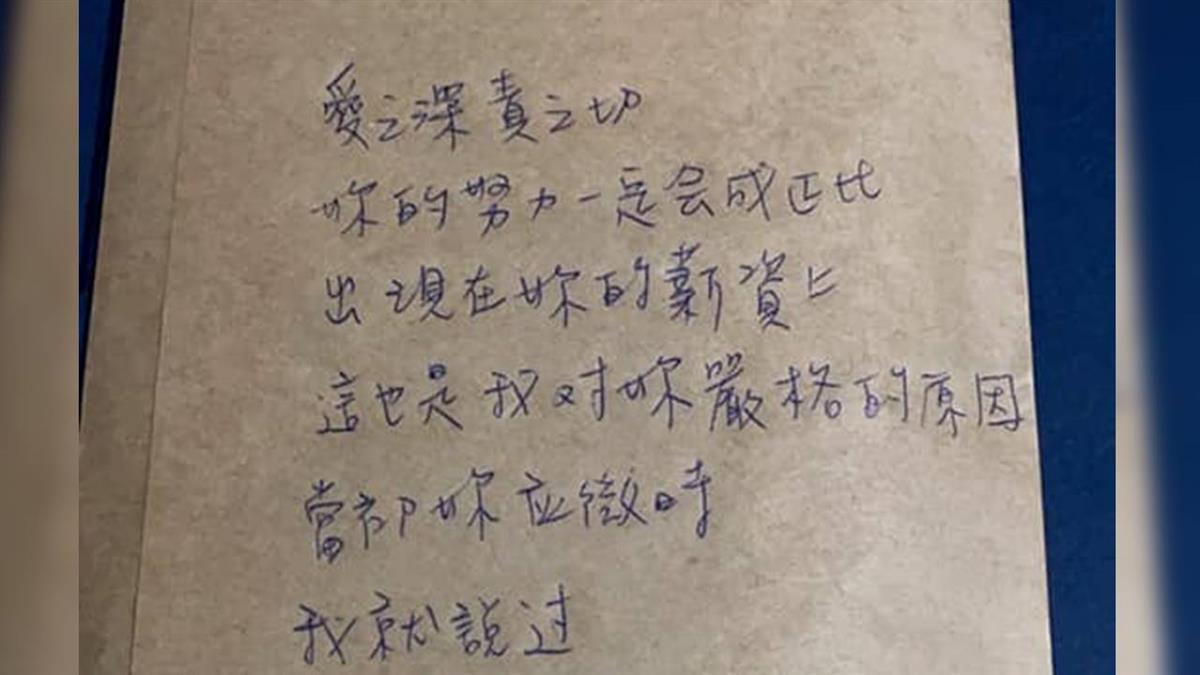 愛之深責之切
妳的努力一定会成正比
出現在妳的薪資上
這也是我对妳嚴格的原因
當初妳应徵時
我就說过